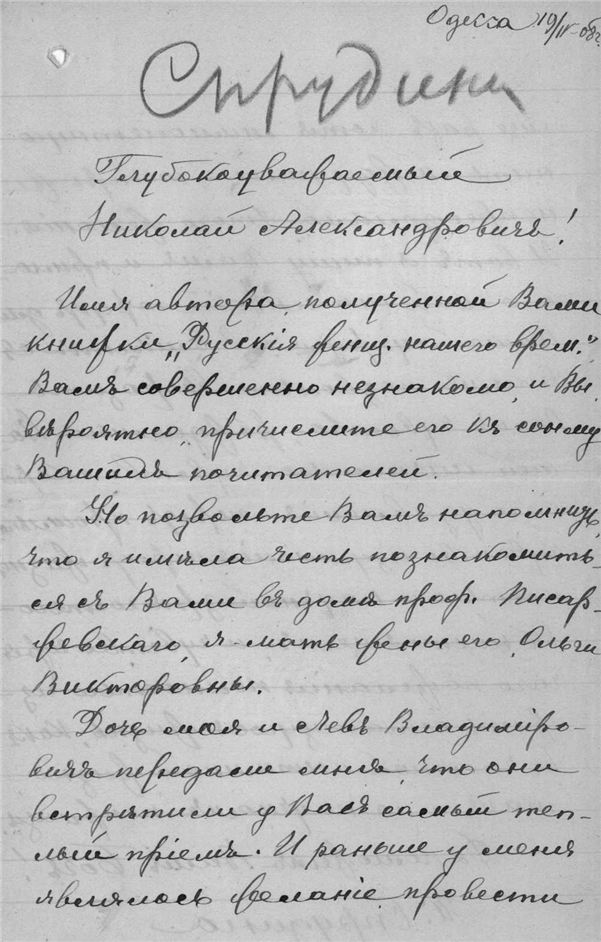 Одесса 19/IV-08г.
Спрудина
Глубокоуважаемый
Николай Александровичъ!
Имя автора, полученной Вами
книжки „Русскія женщ. нашего врем.”
Вамъ совершенно незнакомо, и Вы,
вѣроятно, причислите его къ сонму
Вашихъ почитателей.
Но позвольте Вамъ напомнить,
что я имѣла честь познакомить-
ся съ Вами въ домѣ проф. Писар-
жевскаго, я мать жены его, Ольги
Викторовны.
Дочь моя и Левъ Владиміро-
вичъ передали мнѣ, что они
встрѣтили у Васъ самый теп-
лый пріемъ. И раньше у меня
являлось желаніе провести